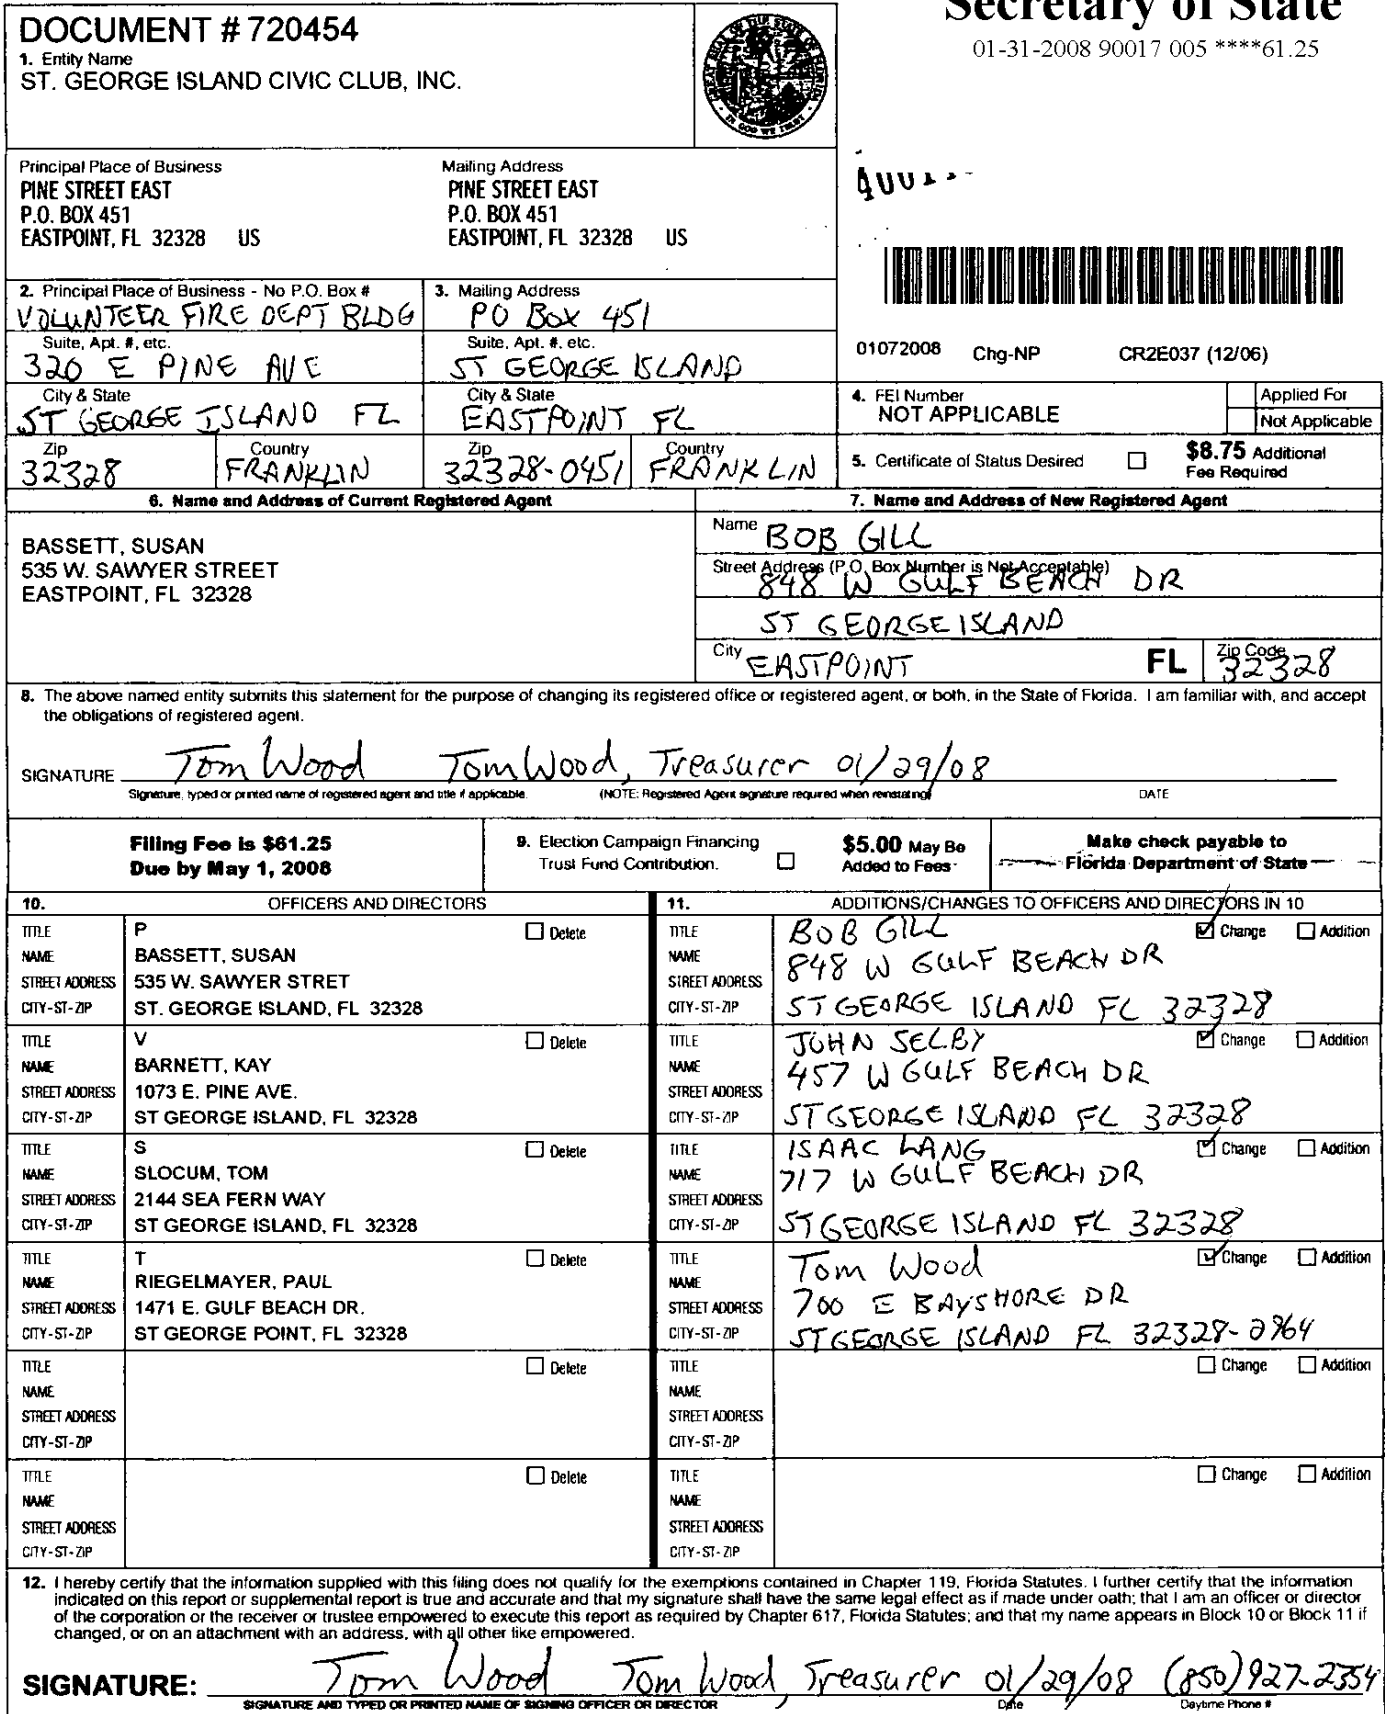 Secretary of State
01-31-2008 90017 005 ****61.25
DOCUMENT # 720454
1. Entity Name
ST. GEORGE ISLAND CIVIC CLUB, INC.
Principal Place of Business
PINE STREET EAST
P.O. BOX 451
EASTPOINT, FL 32328 US
Mailing Address
PINE STREET EAST
P.O. BOX 451
EASTPOINT, FL 32328 US
2. Principal Place of Business - No P.O. Box #
VOLUNTEER FIRE DEPT BLDG
Suite, Apt. #, etc.
320 E PINE AVE
City & State
ST GEORGE ISLAND FL
Zip
32328
Country
FRANKLIN
3. Mailing Address
PO Box 451
Suite, Apt. #, etc.
ST GEORGE ISLAND
City & State
EASTPOINT FL
Zip
32328-0451
Country
FRANKLIN
01072008 Chg-NP CR2E037 (12/06)
4. FEI Number
NOT APPLICABLE
Applied For
Not Applicable
5. Certificate of Status Desired
$8.75 Additional
Fee Required
6. Name and Address of Current Registered Agent
BASSETT, SUSAN
535 W. SAWYER STREET
EASTPOINT, FL 32328
7. Name and Address of New Registered Agent
Name BOB GILL
Street Address (P.O. Box Number is Not Acceptable)
848 W GULF BEACH DR
ST GEORGE ISLAND
City EASTPOINT FL Zip Code 32328
8. The above named entity submits this statement for the purpose of changing its registered office or registered agent, or both, in the State of Florida. I am familiar with, and accept
the obligations of registered agent.
SIGNATURE Tom Wood Tom Wood, Treasurer 01/29/08
Signature, typed or printed name of registered agent and title if applicable. (NOTE: Registered Agent signature required when reinstating) DATE
Filing Fee is $61.25
Due by May 1, 2008
9. Election Campaign Financing
Trust Fund Contribution.
$5.00 May Be
Added to Fees
Make check payable to
Florida Department of State
10. OFFICERS AND DIRECTORS
TITLE P Delete
NAME BASSETT, SUSAN
STREET ADDRESS 535 W. SAWYER STRET
CITY-ST-ZIP ST. GEORGE ISLAND, FL 32328
TITLE V Delete
NAME BARNETT, KAY
STREET ADDRESS 1073 E. PINE AVE.
CITY-ST-ZIP ST GEORGE ISLAND, FL 32328
TITLE S Delete
NAME SLOCUM, TOM
STREET ADDRESS 2144 SEA FERN WAY
CITY-ST-ZIP ST GEORGE ISLAND, FL 32328
TITLE T Delete
NAME RIEGELMAYER, PAUL
STREET ADDRESS 1471 E. GULF BEACH DR.
CITY-ST-ZIP ST GEORGE POINT, FL 32328
TITLE Delete
NAME
STREET ADDRESS
CITY-ST-ZIP
TITLE Delete
NAME
STREET ADDRESS
CITY-ST-ZIP
11. ADDITIONS/CHANGES TO OFFICERS AND DIRECTORS IN 10
TITLE BOB GILL Change Addition
NAME 848 W GULF BEACH DR
STREET ADDRESS
CITY-ST-ZIP ST GEORGE ISLAND FL 32328
TITLE JOHN SELBY Change Addition
NAME 457 W GULF BEACH DR
STREET ADDRESS
CITY-ST-ZIP ST GEORGE ISLAND FL 32328
TITLE ISAAC LANG Change Addition
NAME 717 W GULF BEACH DR
STREET ADDRESS
CITY-ST-ZIP ST GEORGE ISLAND FL 32328
TITLE Tom Wood Change Addition
NAME
STREET ADDRESS 700 E BAYSHORE DR
CITY-ST-ZIP ST GEORGE ISLAND FL 32328-2864
TITLE Change Addition
NAME
STREET ADDRESS
CITY-ST-ZIP
TITLE Change Addition
NAME
STREET ADDRESS
CITY-ST-ZIP
12. I hereby certify that the information supplied with this filing does not qualify for the exemptions contained in Chapter 119, Florida Statutes. I further certify that the information
indicated on this report or supplemental report is true and accurate and that my signature shall have the same legal effect as if made under oath; that I am an officer or director
of the corporation or the receiver or trustee empowered to execute this report as required by Chapter 617, Florida Statutes; and that my name appears in Block 10 or Block 11 if
changed, or on an attachment with an address, with all other like empowered.
SIGNATURE: Tom Wood Tom Wood, Treasurer 01/29/08 (850)927-2354
SIGNATURE AND TYPED OR PRINTED NAME OF SIGNING OFFICER OR DIRECTOR Date Daytime Phone #